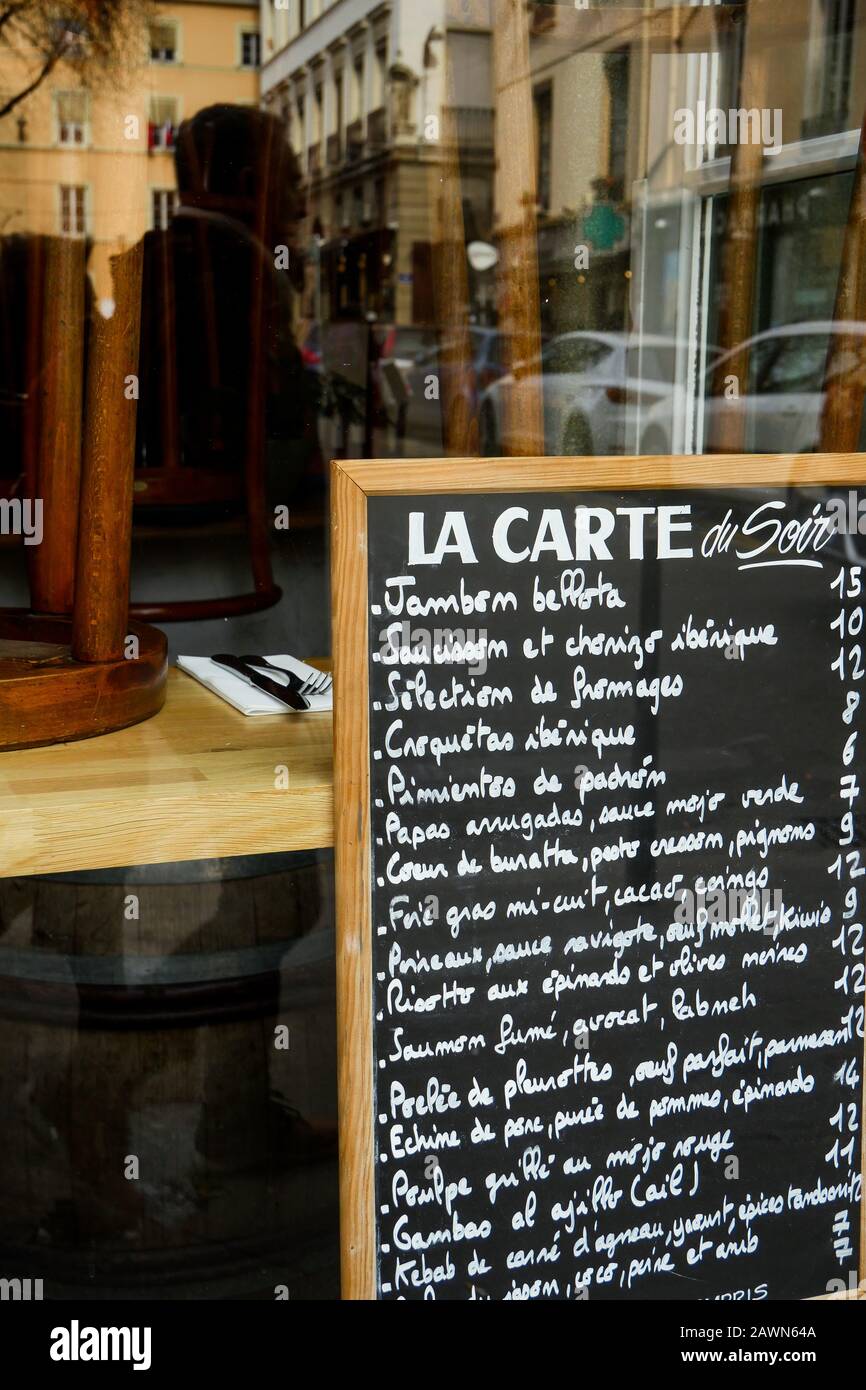 LA CARTE du Soir
. Jambon bellota 15
. Saucisson et chorizo ibérique 10
. Sélection de fromages 12
. Croquetas ibérique 8
. Pimientos de padrón 6
. Papas arrugadas, sauce mojo verde 7
. Coeur de buratta, pesto cresson, pignons 9
. Foie gras mi-cuit, cacao, coings 12
. Poireaux, sauce ravigote, oeuf mollet, kiwis 9
. Risotto aux épinards et olives noires 12
. Saumon fumé, avocat, labneh 12
. Poêlée de pleurottes, oeuf parfait, parmesan 12
. Echine de porc, purée de pommes, épinards 14
. Poulpe grillé au mojo rouge 12
. Gambas al ajillo (ail) 11
. Kebab de carré d'agneau, yaourt, épices tandoori 7
coco, poire et anis 7
alamy
Image ID: 2AWN64A
www.alamy.com